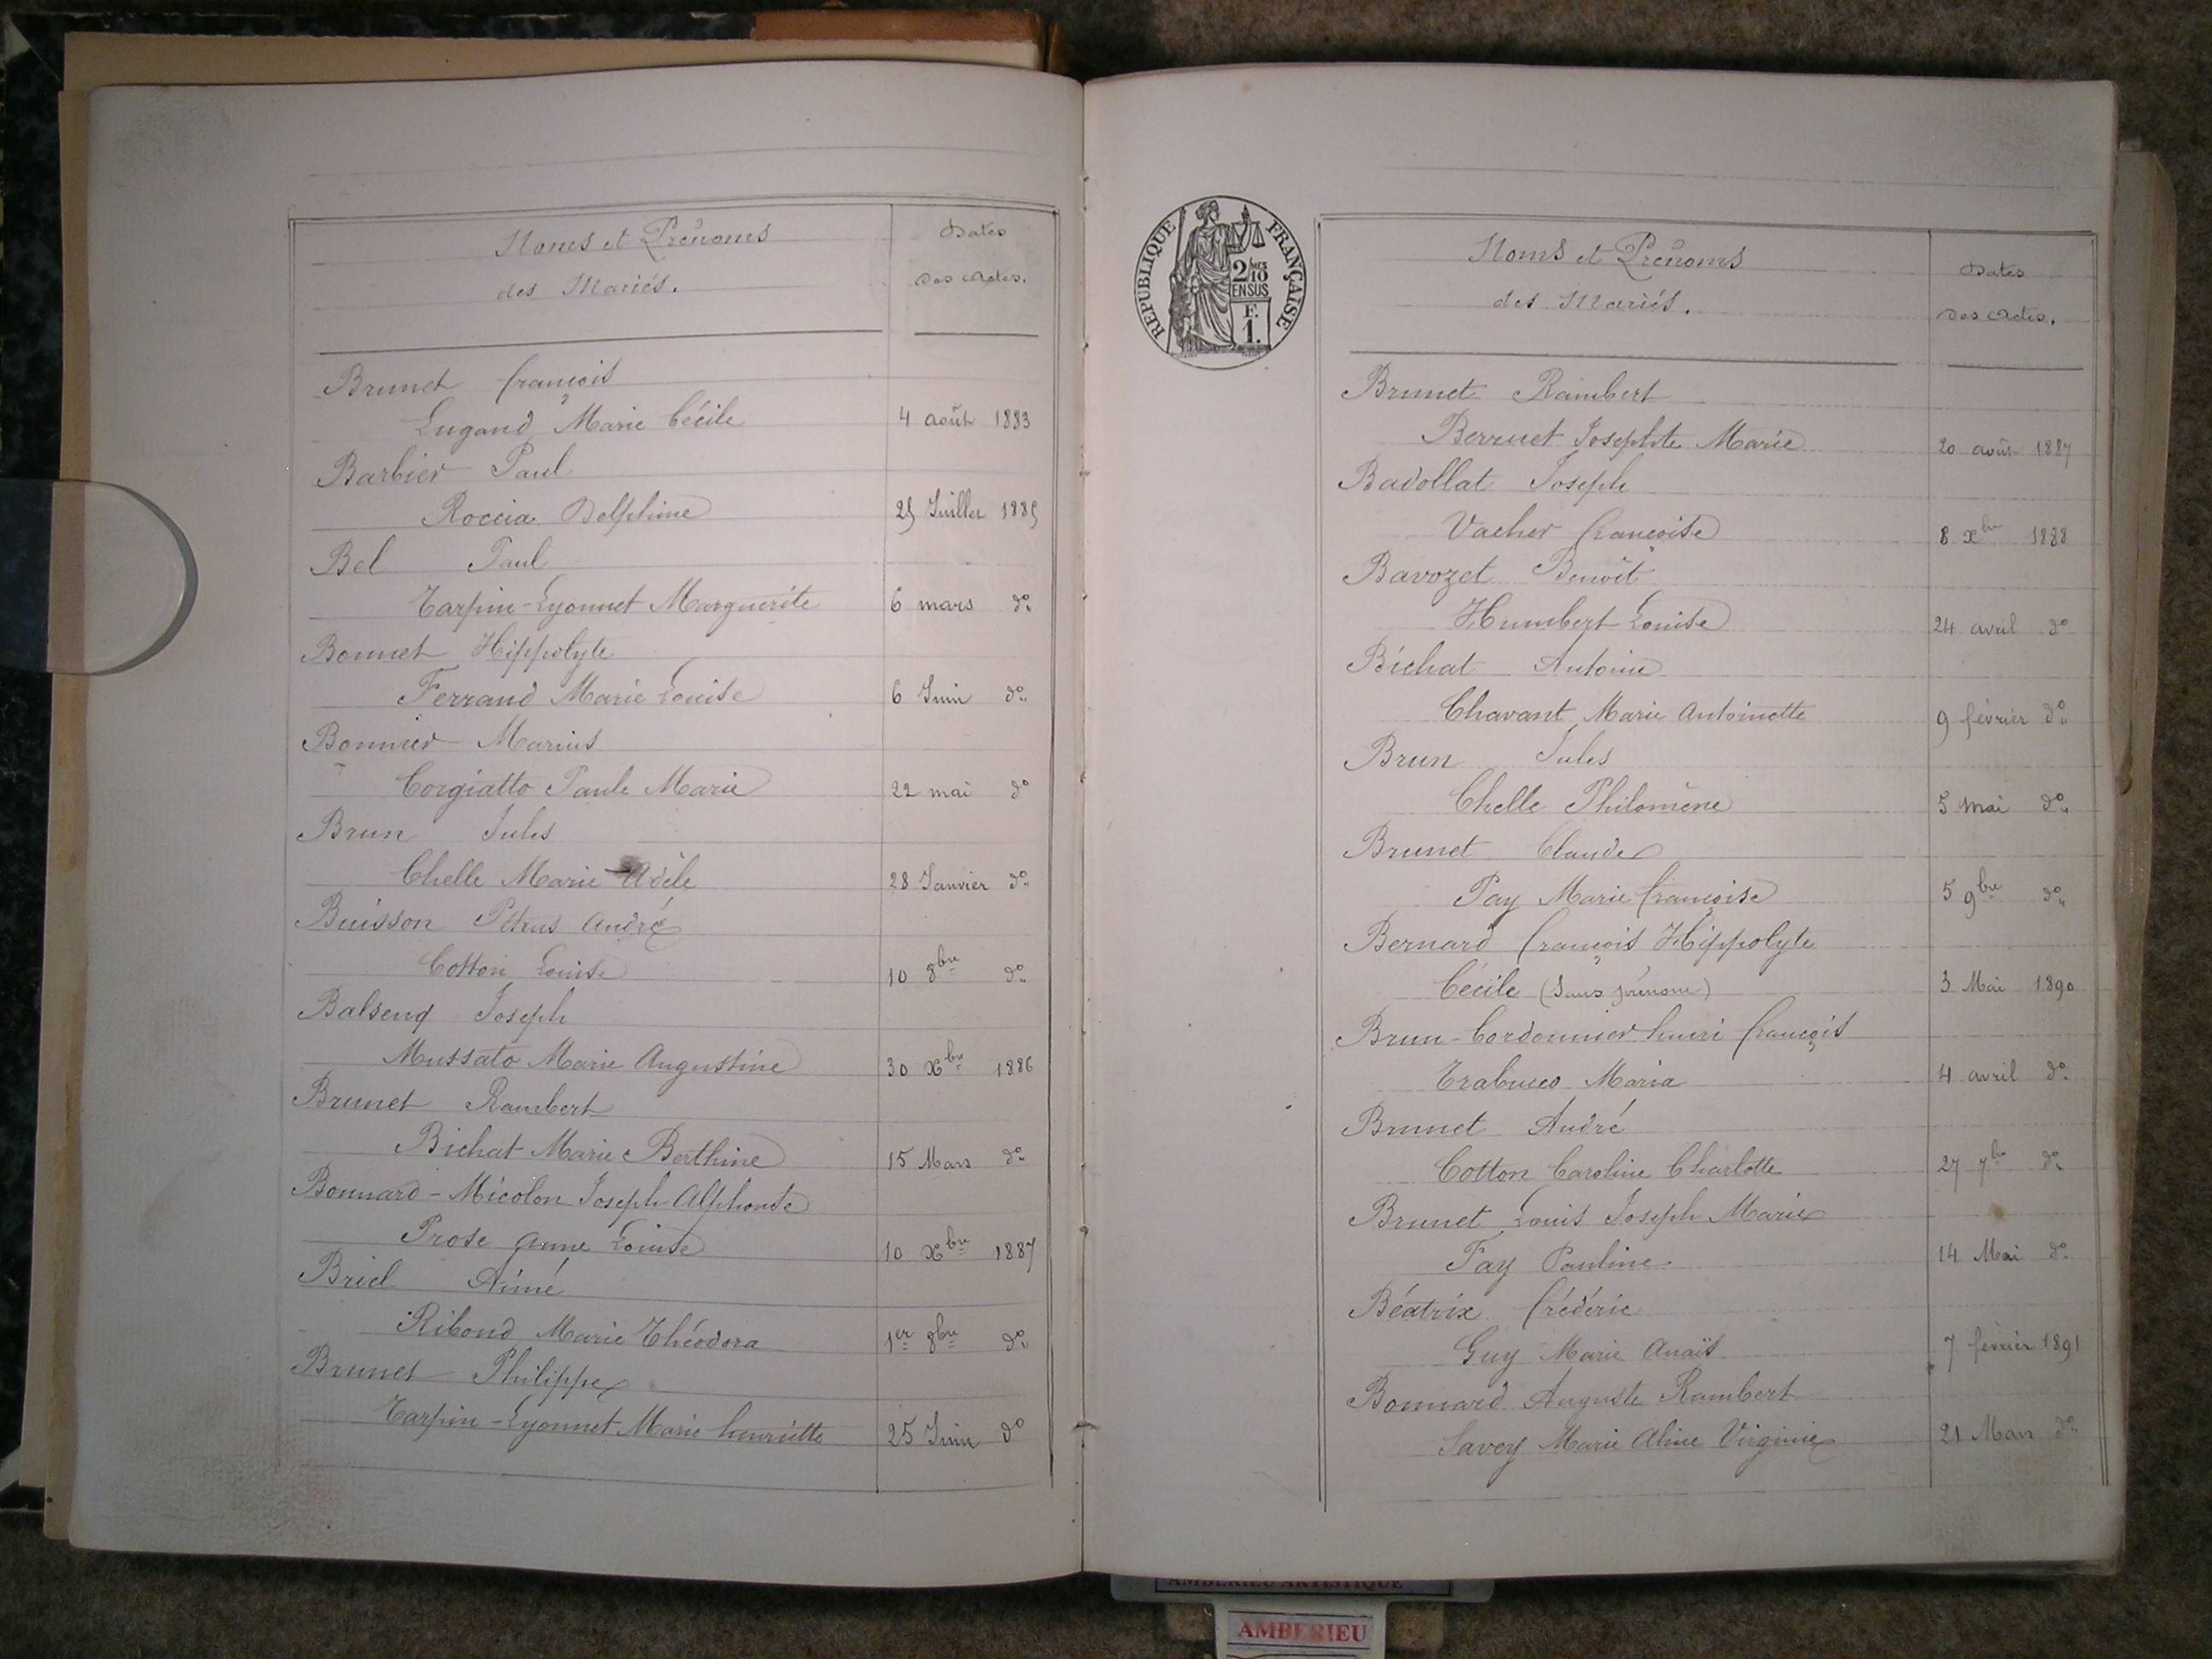 Noms et Prénoms
des Mariés.
Dates
des Actes.
Brunet françois
Lugand Marie Cécile 4 août 1883
Barbier Paul
Roccia Delphine 25 Juillet 1885
Bel Paul
Tarpin-Lyonnet Marguerite 6 mars do
Bonnet Hippolyte
Ferrand Marie Louise 6 Juin do
Bonnier Marius
Corgiatto Paule Marie 22 mai do
Brun Jules
Chelle Marie Adèle 28 Janvier do
Buisson Pétrus André
Cotton Louise 10 8bre do
Balsenq Joseph
Mussato Marie Augustine 30 Xbre 1886
Brunet Rambert
Bichat Marie Berthine 15 Mars do
Bonnard-Micolon Joseph Alphonse
Prost Anne Louise 10 Xbre 1887
Briel Aimé
Riboud Marie Théodora 1er 8bre do
Brunet Philippe
Tarpin-Lyonnet Marie henriette 25 Juin do
RÉPUBLIQUE FRANÇAISE
2/10MES
EN SUS
F.
1.
Noms et Prénoms
des Mariés.
Dates
des Actes.
Brunet Raimbert
Berruet Josephte Marie 20 août 1887
Badollat Joseph
Vacher francoise 8 Xbre 1888
Bavozet Benoît
Humbert Louise 24 avril do
Bichat Antoine
Chavant Marie Antoinette 9 février do
Brun Jules
Chelle Philomène 5 Mai do
Brunet Claude
Pay Marie françoise 5 9bre do
Bernard françois Hippolyte
Cécile (Sans prénom) 3 Mai 1890
Brun-Cordonnier henri françois
Trabucco Maria 4 avril do
Brunet André
Cotton Caroline Charlotte 27 7bre do
Brunet Louis Joseph Marie
Fay Pauline 14 Mai do
Béatrix frédéric
Guy Marie Anaïs 7 février 1891
Bonnard Auguste Rambert
Savey Marie Aline Virginie 21 Mars do
AMBERIEU ARTISTIQUE
AMBERIEU